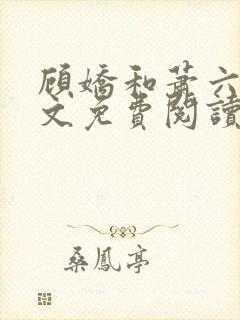 顾嬌和蕭六
文免費閱讀
桑鳳亭